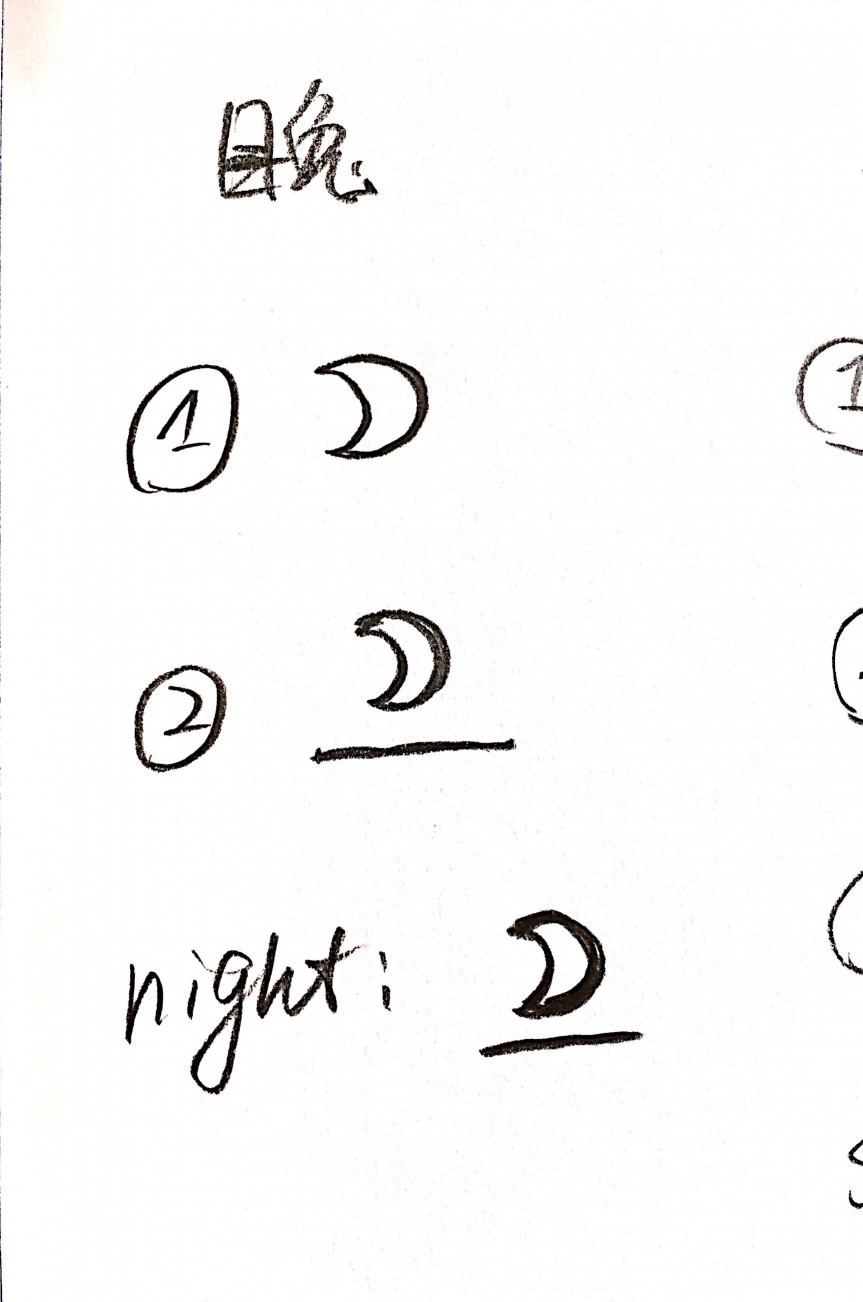 晚
① 
②
night: